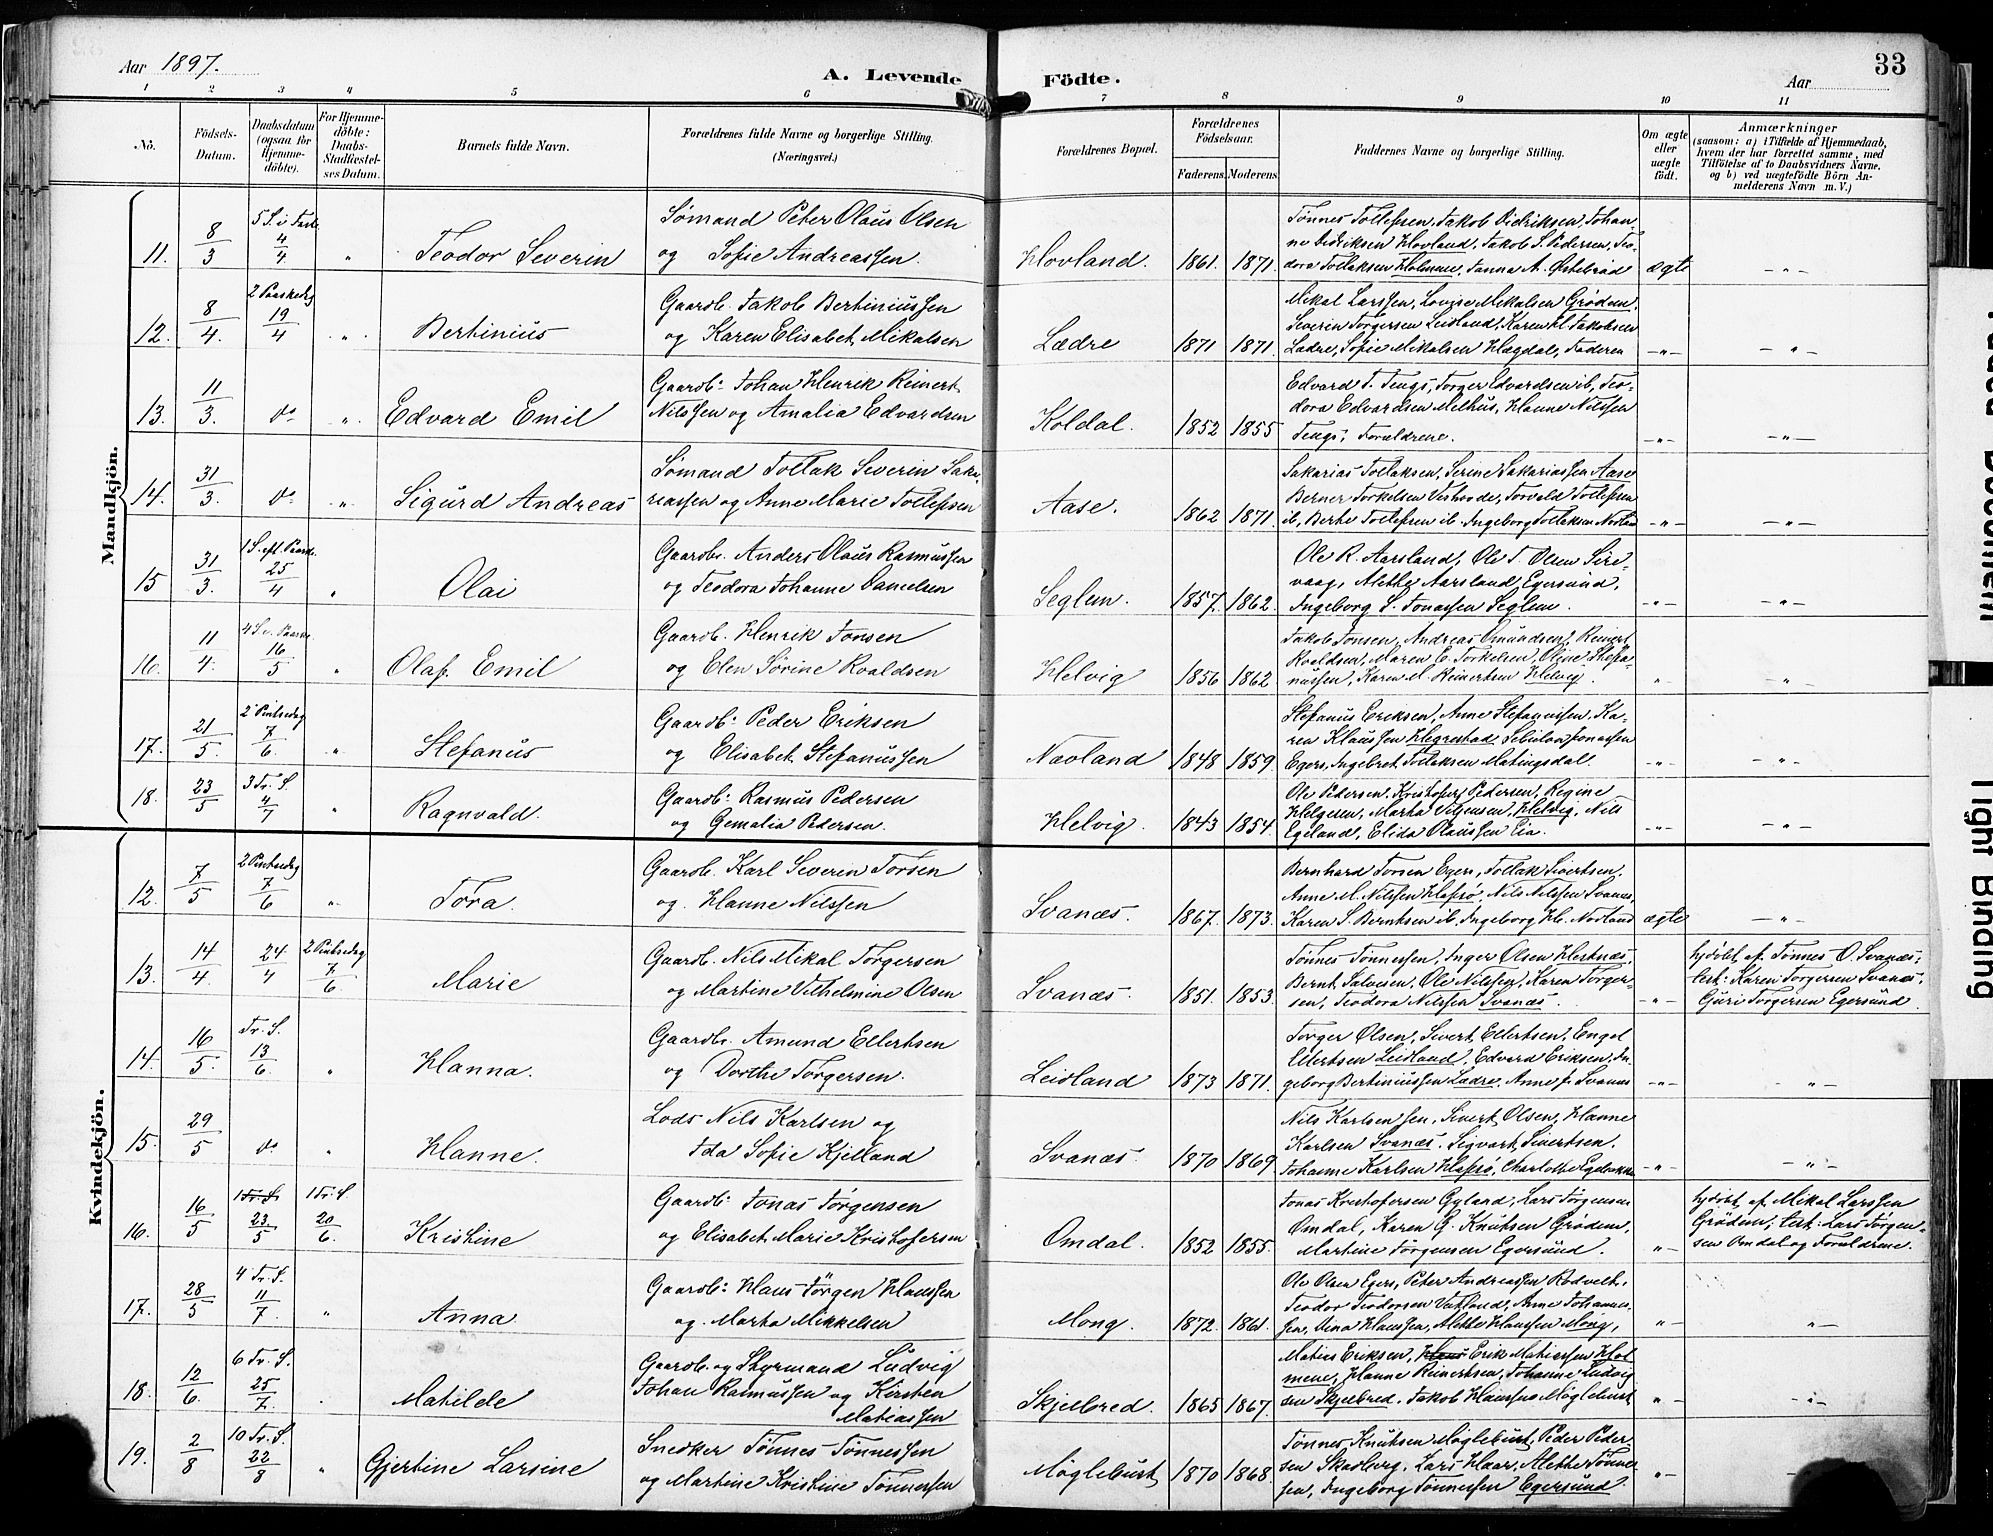 Aar 1897.
A. Levende Födte.
Aar
33
1 2 3 4 5 6 7 8 9 10 11
No.
Födsels-Datum.
Daabsdatum (ogsaa for Hjemmedöbte).
For Hjemmedöbte: Daabs-Stadfæstelses Datum.
Barnets fulde Navn.
Forældrenes fulde Navne og borgerlige Stilling. (Næringsvei.)
Forældrenes Bopæl.
Forældrenes Födselsaar.
Faderens. Moderens.
Faddernes Navne og borgerlige Stilling.
Om ægte eller uægte födt.
Anmærkninger
(saasom: a) i Tilfælde af Hjemmedaab, hvem der har forrettet samme, med Tilföielse af to Daabsvidners Navne. og b) ved uægtefödte Börn Anmelderens Navn m. V.)
Mandkjön.
11. 8/3 4/4 " Teodor Severin
Sømand Peter Olaus Olsen
og Sofie Andreassen.
Hovland. 1861. 1871.
Tønnes Tollefsen, Jakob Didriksen, Johan-
ne Didriksen Hovland, Jakob S. Pedersen, Teo-
dora Tollaksen Holmene, Tanna A. Østebrød ægte - " -
12. 8/4. 2 Paaskedag 19/4 " Bertinius
Gaardb. Jakob Bertiniussen
og Karen Elisabet Mikalsen
Lædre 1871 1871.
Mikal Larssen, Lovise Mikalsen Grødem,
Severin Torgersen Leidland, Karen H. Jakobsen
Lædre, Sofie Mikalsen Hægdal, Faderen - " - - " -
13. 11/3. do " Edvard Emil
Gaardb: Johan Henrik Reinert
Nilssen og Amalia Edvardsen
Koldal. 1852 1855
Edvard T. Tengs, Torger Edvardsen ib, Teo-
dora Edvardsen Melhus, Hanne Nilssen
Tengs, Forældrene. - " - - " -
14. 31/3. do " Sigurd Andreas
Sømand Tollak Severin Saka-
riassen og Anne Marie Tollefsen
Aase. 1862 1871.
Sakarias Tollaksen, Serine Sakariassen Aase
Berner Torkelsen, Torvald Tollefsen
ib, Berte Tollefsen ib. Ingeborg Tollaksen - " - - " -
15 31/3. 25/4 " Olai
Gaardbr. Anders Olaus Rasmussen
og Teodora Johanne Danielsen
Seglem. 1857. 1862.
Ole R. Aarsland, Ole T. Olsen Sire-
vaag, Alethe Aarsland Egersund,
Ingeborg S. Jonassen Seglem. - " - - " -
16. 11/4. 16/5 " Olaf Emil
Gaardb. Henrik Jonsen
og Elen Sørine Roaldsen
Helvig 1856 1862
Jakob Jonsen, Andreas Omundsen, Reinert
Roaldsen, Maren E. Torkelsen, Oline Stefa-
nussen, Karen M. Reinertsen Helvig. " - " -
17. 21/5. 2 Pintsedag 7/6. " Stefanus
Gaardb: Peder Eriksen
og Elisabet Stefanussen
Nævland 1848 1859.
Stefanus Eriksen, Anne Stefanussen, Ka-
ren Klaussen Hegrestad Jonassen
Eger, Ingebret Tollaksen Matingsdal. - " - - " -
18. 23/5 3 Tr. S. 4/7 " Ragnvald.
Gaardb: Rasmus Pedersen
og Gemalia Pedersen.
Helvig. 1843 1854.
Ole Pedersen, Kristofer Pedersen, Regine
Helgesen, Marta Helvig, Nils
Egeland, Elida Olaussen Eia. - " - - " -
Kvindekjön.
12. 7/5 2 Pintsedag 7/6 " Tora.
Gaardb. Karl Severin Torsen
og Hanne Nilssen
Svanæs. 1867. 1873.
Bernhard Torsen Eger, Tollak Sivertsen,
Anne M. Nilssen Hafsø, Nils Nilssen Svanæs,
Karen S. Berntsen ib, Ingeborg H. Nodland ægte - " -
13. 14/4 24/4 2 Pintsedag 7/6 Marie
Gaardb. Nils Mikal Torgersen
og Martine Vilhelmine Olsen
Svanæs. 1851. 1853.
Tønnes Tønnessen, Inger Olsen Hestnæs,
Bernt Salvesen, Ole Nilssen, Karen Torger-
sen, Teodora Nilssen Svanæs. - " -
hjdöbt af Tønnes O. Svanæs,
test: Karen Torgersen Svanæs,
Guri Torgersen Egersund
14. 16/5. Tr. S. 13/6. " Hanna.
Gaardbr. Amund Ellertsen
og Dorthe Torgersen.
Leidland 1873 1871.
Torger Olsen, Sivert Ellertsen, Engel
Ellertsen Leidland, Edvard Eriksen, In-
geborg Bertiniussen Lædre, Anne Svanæs - " - " -
15. 29/5 do " Hanne.
Lods Nils Karlsen og
Ida Sofie Kjelland
Svanæs. 1870 1869.
Nils Karlsen sen, Sivert Olsen, Hanne
Karlsen Svanæs. Sigvart Sivertsen,
Johanne Karlsen Hafsø, Charlotte - " - - " -
16. 16/5 1 Tr. S. 23/5 1 Tr. S. 20/6. Kristine
Gaardb: Jonas Jörgensen
og Elisabet Marie Kristofersen
Omdal. 1852 1855.
Jonas Kristofersen Gyland, Lars Jörgensen
Omdal, Karen G. Knutsen Grødem,
Martine Jörgensen Egersund. " -
hjdöbt af Mikal Larssen
Grødem; test: Lars Jörgen-
sen Omdal og Forældrene.
17. 28/5 4 Tr. S. 11/7. " Anna
Gaardb: Klaus Jörgen Klaussen
og Marta Mikkelsen
Mong. 1872. 1861.
Ole Olsen Eger, Peter Andreassen Rodvelt,
Teodor Teodorsen Vatland, Anne Johannes-
sen, Dina Klaussen, Alethe Klaussen Mong, " - " -
18. 12/6. 6 Tr. S. 25/7. Matilde
Gaardb. og Styrmand Ludvig
Johan Rasmussen og Kirsten
Matiassen
Skjelbred. 1865 1867.
Matias Eriksen, Erik Matiassen Hol-
mene, Hanne Reinertsen, Johanne Ludvig
sen Skjelbred, Jakob Hanssen Møglebust " - - " -
19. 2/8 10 Tr. S. 22/8 " Gjertine Larsine
Snedker Tönnes Tönnessen
og Martine Kristine Tönnessen
Møglebust 1870 1868.
Tønnes Knutsen Møglebust, Peder Peder
sen Skadberg, Lars Haar, Alethe Tönnes
sen, Ingeborg Tönnessen Egersund " -
Tight Binding